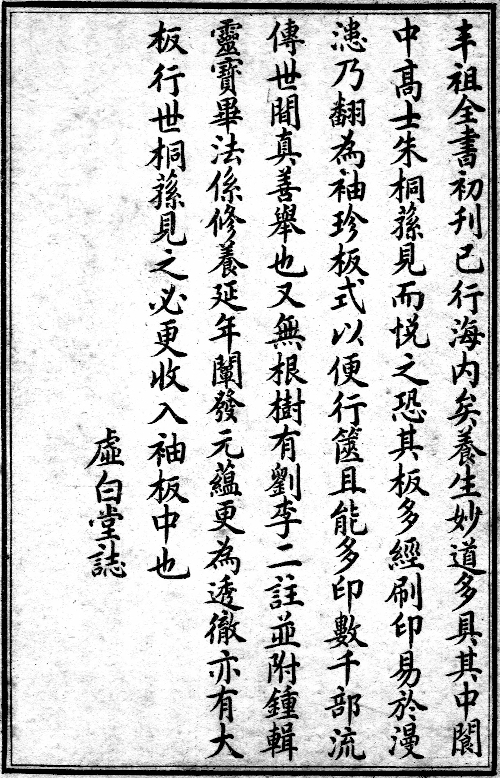 丰祖全書初刊已行海內矣養生妙道多具其中閬
中髙士朱桐蓀見而悦之恐其板多經刷印易於漫
漶乃翻為袖珍板式以便行篋且能多印數千部流
傳世間真善舉也又無根樹有劉李二註並附鍾輯
靈寶畢法係修養延年闡發元蘊更為透徹亦有大
板行世桐蓀見之必更收入袖板中也
虛白堂誌